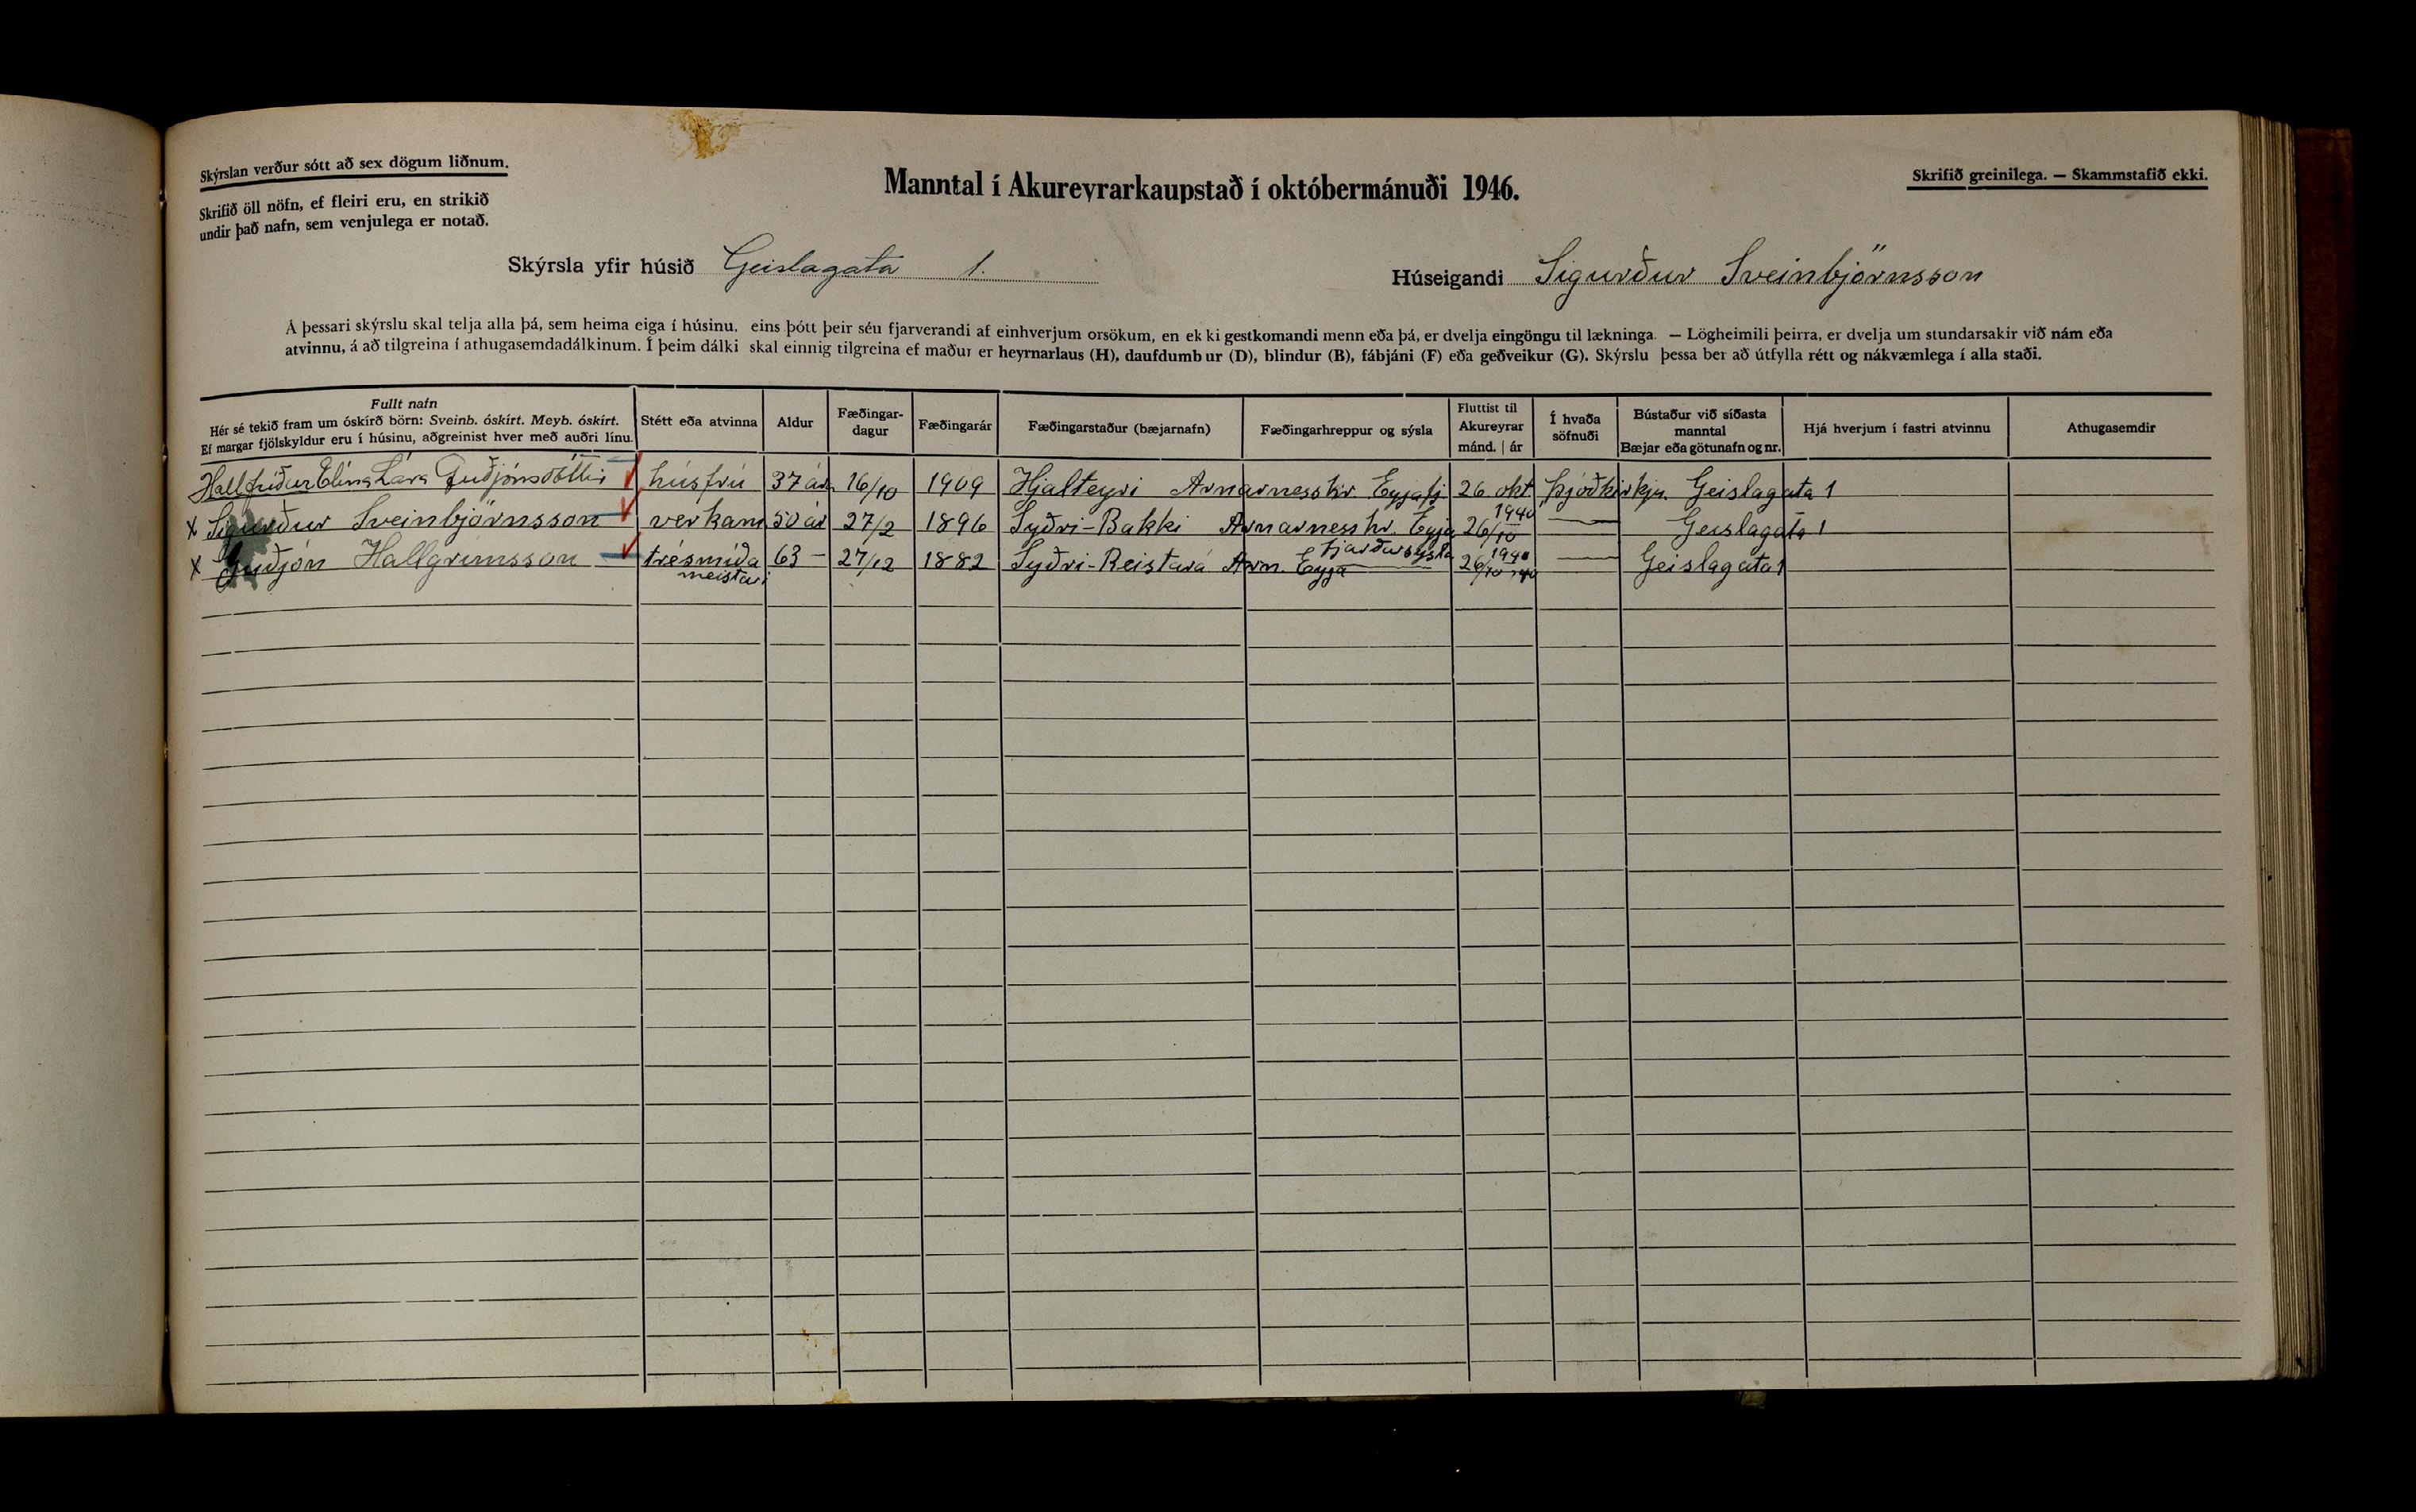 Skýrslan verður sótt að sex dögum liðnum.
Skrifið öll nöfn, ef fleiri eru, en strikið
undir það nafn, sem venjulega er notað.
Manntal í Akureyrarkaupstað í októbermánuði 1946.
Skrifið greinilega. — Skammstafið ekki.
Skýrsla yfir húsið Geislagata 1.
Húseigandi Sigurður Sveinbjörnsson
Á þessari skýrslu skal telja alla þá, sem heima eiga í húsinu. eins þótt þeir séu fjarverandi af einhverjum orsökum, en ekki gestkomandi menn eða þá, er dvelja eingöngu til lækninga. — Lögheimili þeirra, er dvelja um stundarsakir við nám eða
atvinnu, á að tilgreina í athugasemdadálkinum. Í þeim dálki skal einnig tilgreina ef maður er heyrnarlaus (H), daufdumbur (D), blindur (B), fábjáni (F) eða geðveikur (G). Skýrslu þessa ber að útfylla rétt og nákvæmlega í alla staði.
Fullt nafn
Hér sé tekið fram um óskírð börn: Sveinb. óskírt. Meyb. óskírt.
Ef margar fjölskyldur eru í húsinu, aðgreinist hver með auðri línu.
Stétt eða atvinna
Aldur
Fæðingar-
dagur
Fæðingarár
Fæðingarstaður (bæjarnafn)
Fæðingarhreppur og sýsla
Fluttist til
Akureyrar
mánd. | ár
Í hvaða
söfnuði
Bústaður við síðasta
manntal
Bæjar eða götunafn og nr.
Hjá hverjum í fastri atvinnu
Athugasemdir
Hallfríður Elína Lára Guðjónsdóttir húsfrú 37 ár 16/10 1909 Hjalteyri Arnarnesshr Eyjafj 26 okt 1940 Þjóðkirkju Geislagata 1
x Sigurður Sveinbjörnsson verkam 50 ár 27/2 1896 Syðri-Bakki Arnarnesshr. Eyja fjarðarsýsla 26/10 1940 — Geislagata 1
x Guðjón Hallgrímsson trésmíða meistari 63 — 27/12 1882 Syðri-Reistará Arn. Eyja 26/10 40 — Geislagata 1